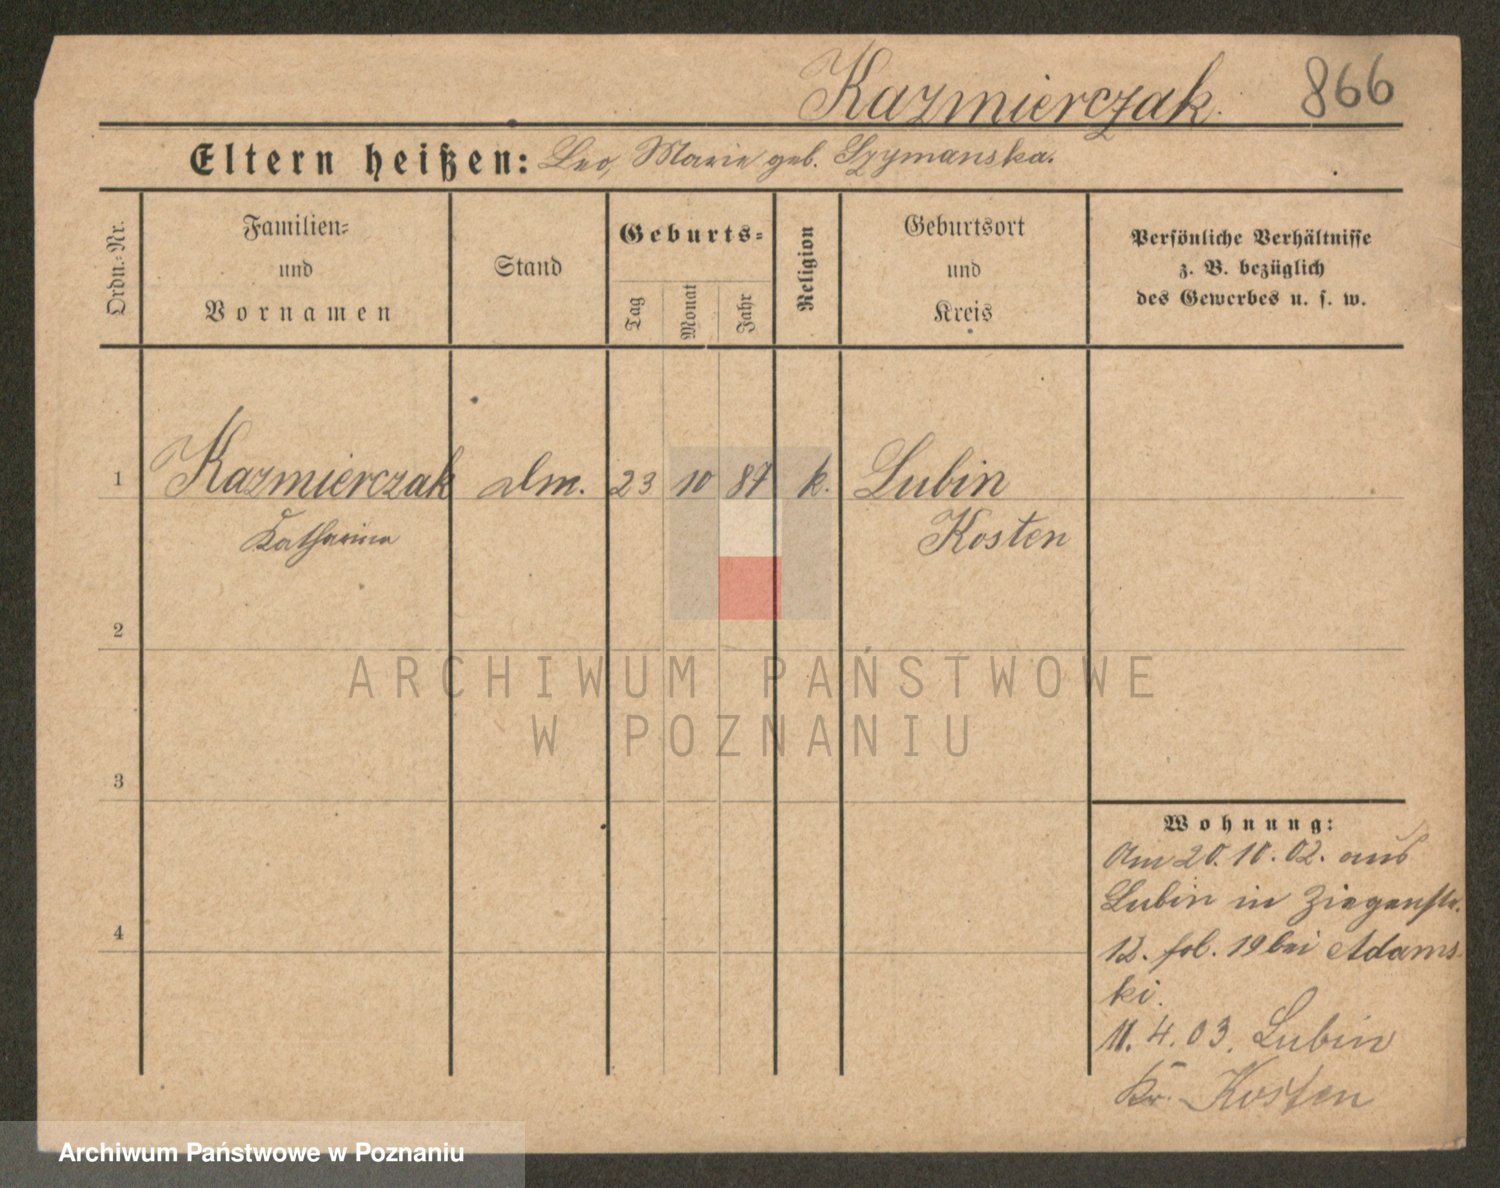 Kazmierczak. 866
Eltern heißen: Leo, Marie geb. Szymanska.
Ordn.-Nr.
Familien-
und
Vornamen
Stand
Geburts-
Tag
Monat
Jahr
Religion
Geburtsort
und
Kreis
Persönliche Verhältnisse
z. B. bezüglich
des Gewerbes u. s. w.
1 Kazmierczak 23 10 87 k. Lubin
Katharina Kosten
2
3
4
Wohnung:
Am 20. 10. 02. aus
Lubin in Ziegenstr.
12. fol. 19 bei Adams
ki.
11. 4. 03. Lubin
Kr. Kosten
ARCHIWUM PAŃSTWOWE
W POZNANIU
Archiwum Państwowe w Poznaniu